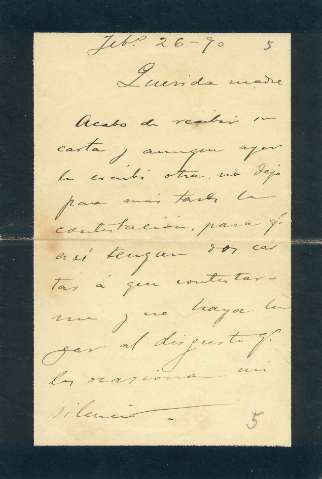 Feb.º 26-90 5
Querida madre
Acabo de recibir su
carta y aunque ayer
le escribí otra, no dejo
para mas tarde la
contestación, para q.
así tengan dos car
tas á que contestar-
me y no haya lu
gar al disgusto q.
les ocasiona mi
silencio.
5